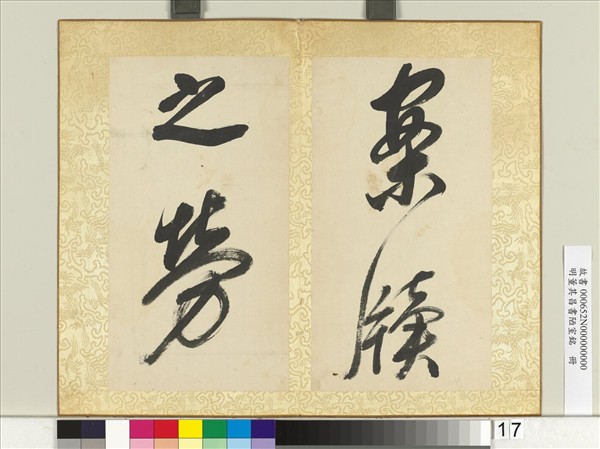 案牘
之勞
故書 000652N000000000
明董其昌書陋室銘　冊
17